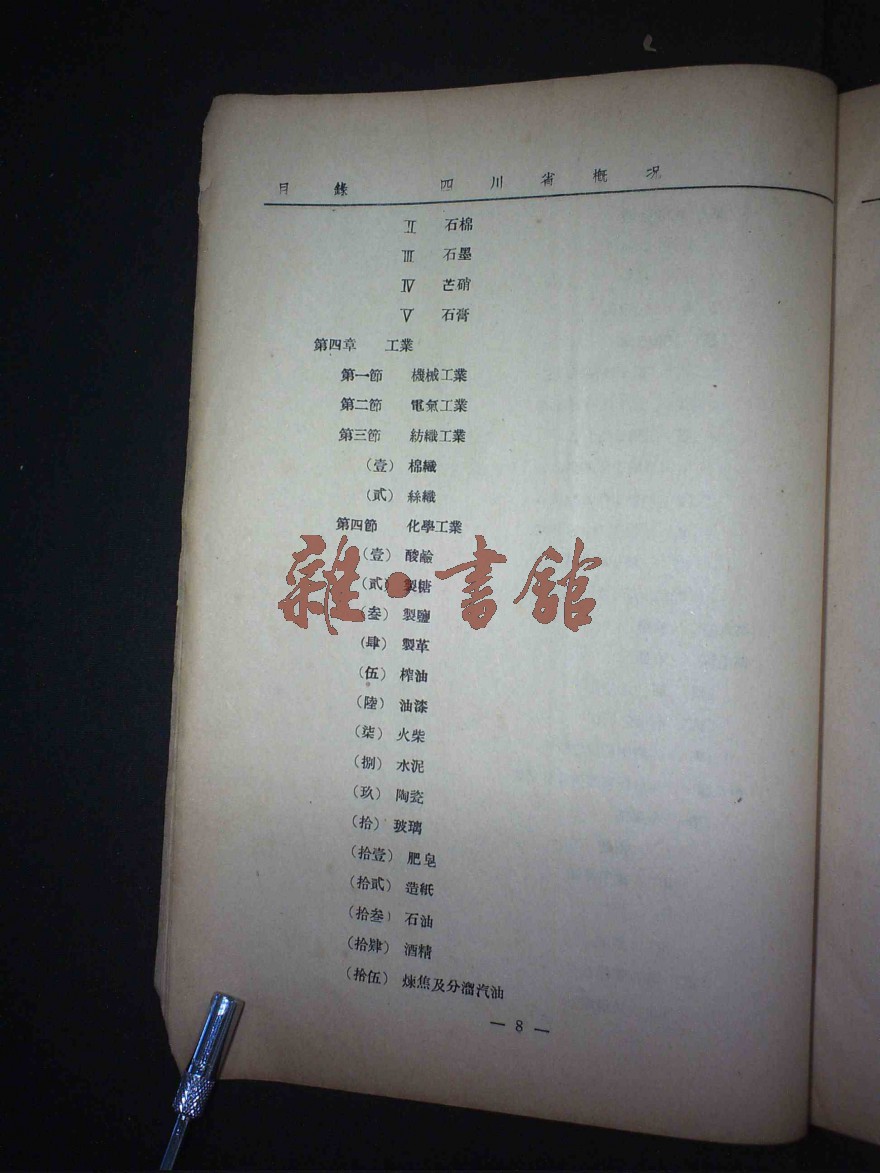 目錄 四川省概况
Ⅱ 石棉
Ⅲ 石墨
Ⅳ 芒硝
Ⅴ 石膏
第四章 工業
第一節 機械工業
第二節 電氣工業
第三節 紡織工業
（壹）棉織
（貳）絲織
第四節 化學工業
（壹）酸鹼
（貳）製糖
（叁）製鹽
（肆）製革
（伍）榨油
（陸）油漆
（柒）火柴
（捌）水泥
（玖）陶瓷
（拾）玻璃
（拾壹）肥皂
（拾貳）造紙
（拾叁）石油
（拾肆）酒精
（拾伍）煉焦及分溜汽油
— 8 —
雜·書館